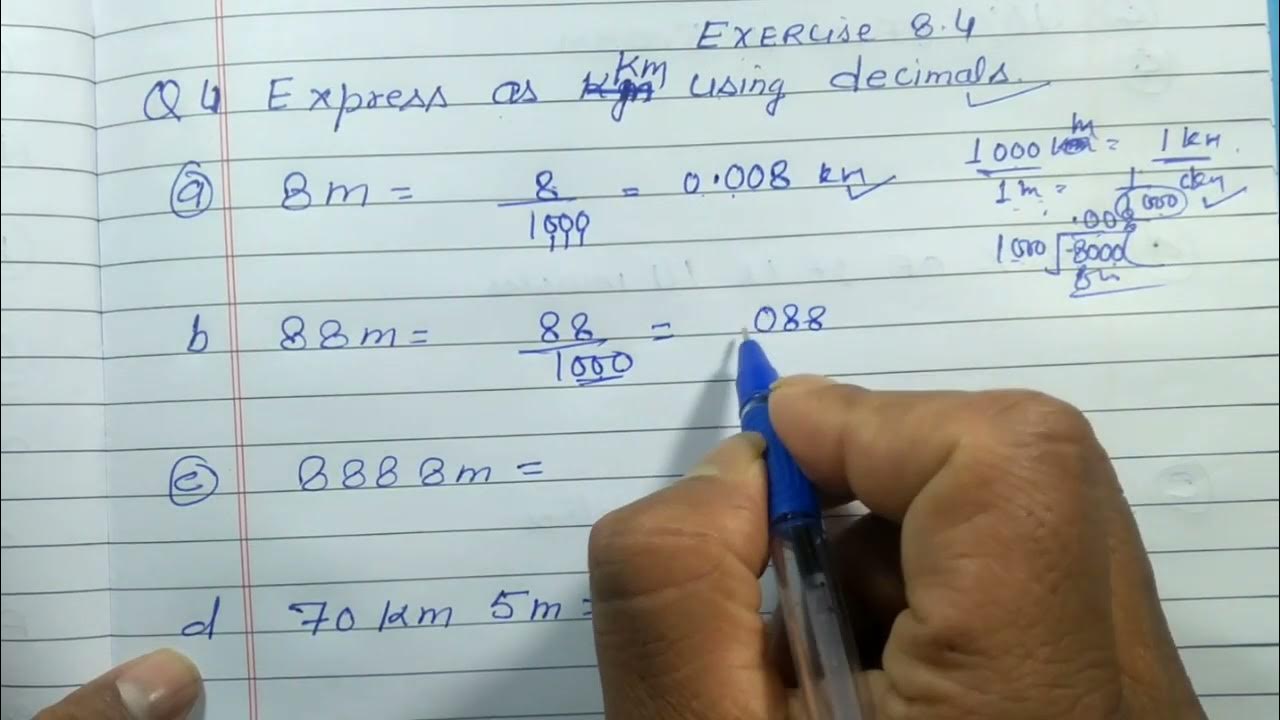 EXERCISE 8.4
Q4 Express as km using decimals.
(a) 8m = 8/1000 = 0.008 km
1000 m = 1 km
1m = 1/1000 km
.008
1000 8000
b 88m = 88/1000 = 088
(c) 8888m =
d 70 km 5m =